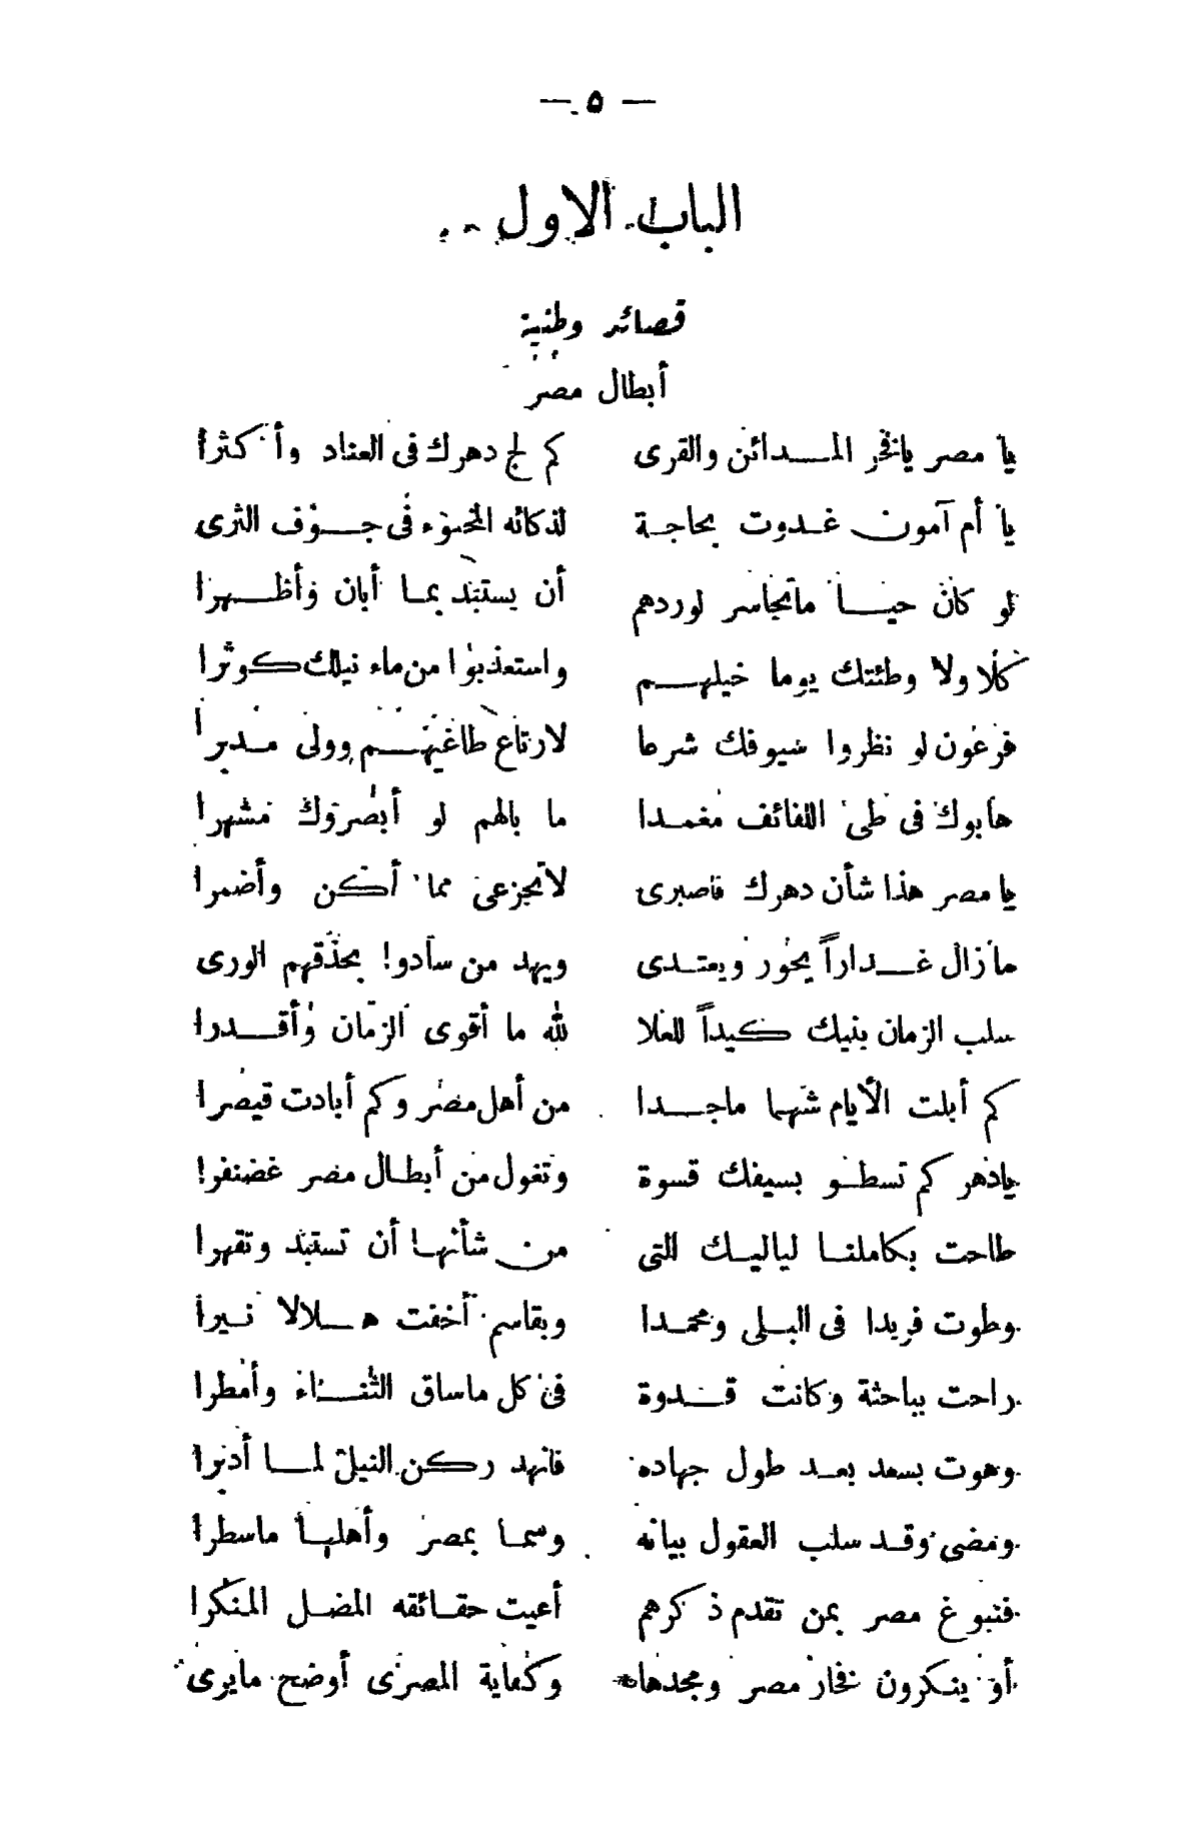 — ٥ —
الباب الاول
قصائد وطنية
أبطال مصر
يا مصر يافخر المدائن والقرى كم لج دهرك فى العناد وأكثرا
يا أم آمون غدوت بحاجة لذكائه المخبوء فى جوف الثرى
لو كان حيا ماتجاسر لوردهم أن يستبد بما أبان وأظهرا
كلا ولا وطئتك يوما خيلهم واستعذبوا من ماء نيلك كوثرا
فرعون لو نظروا سيوفك شرعا لارتاع طاغيهم وولى مدبرا
هابوك فى طى اللفائف مغمدا ما بالهم لو أبصروك مشهرا
يا مصر هذا شأن دهرك فاصبرى لاتجزعى مما أكن وأضمرا
مازال غداراً يجور ويعتدى ويهد من سادوا بحذقهم الورى
سلب الزمان بنيك كيداً للعلا لله ما أقوى الزمان وأقدرا
كم أبلت الأيام شهما ماجدا من أهل مصر وكم أبادت قيصرا
يادهر كم تسطو بسيفك قسوة وتغول من أبطال مصر غضنفرا
طاحت بكاملنا لياليك التى من شأنها أن تستبد وتقهرا
وطوت فريدا فى البلى ومحمدا وبقاسم أخفت هلالا نيرا
راحت بباحثة وكانت قدوة فى كل ماساق الثناء وأمطرا
وهوت بسعد بعد طول جهاده فانهد ركن النيل لما أدبرا
ومضى وقد سلب العقول بيانه وسما بمصر وأهلها ماسطرا
فنبوغ مصر بمن تقدم ذكرهم أعيت حقائقه المضل المنكرا
أو ينكرون فخار مصر ومجدها وكفاية المصرى أوضح مايرى